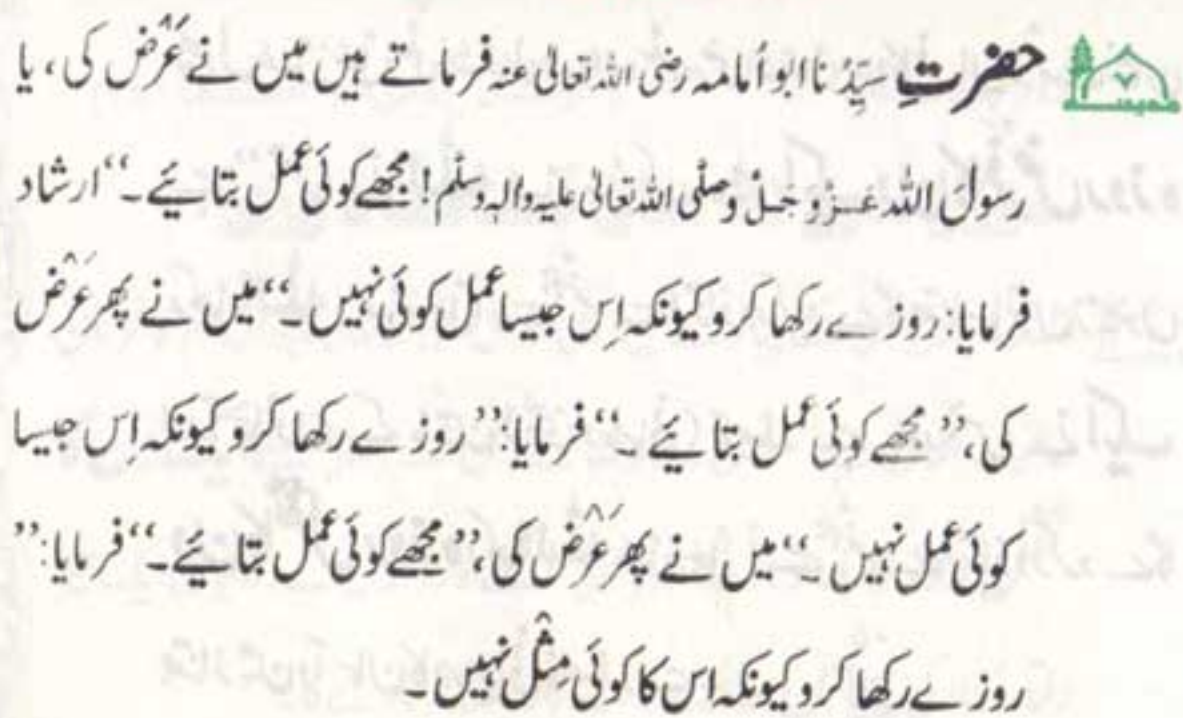 ۷ حضرتِ سیِّدُنا ابو اُمامہ رضی اللہ تعالیٰ عنہ فرماتے ہیں میں نے عَرْض کی، یا
رسولَ اللہ عَزَّوَجَلَّ وصلَّی اللہ تعالیٰ علیہ واٰلہٖ وسلَّم! مجھے کوئی عمل بتائیے۔‘‘ ارشاد
فرمایا: روزے رکھا کرو کیونکہ اِس جیسا عمل کوئی نہیں۔‘‘ میں نے پھر عَرْض
کی، ’’مجھے کوئی عمل بتائیے۔‘‘ فرمایا: ’’روزے رکھا کرو کیونکہ اِس جیسا
کوئی عمل نہیں۔‘‘ میں نے پھر عَرْض کی، ’’مجھے کوئی عمل بتائیے۔‘‘ فرمایا: ’’
روزے رکھا کرو کیونکہ اس کا کوئی مِثْل نہیں۔